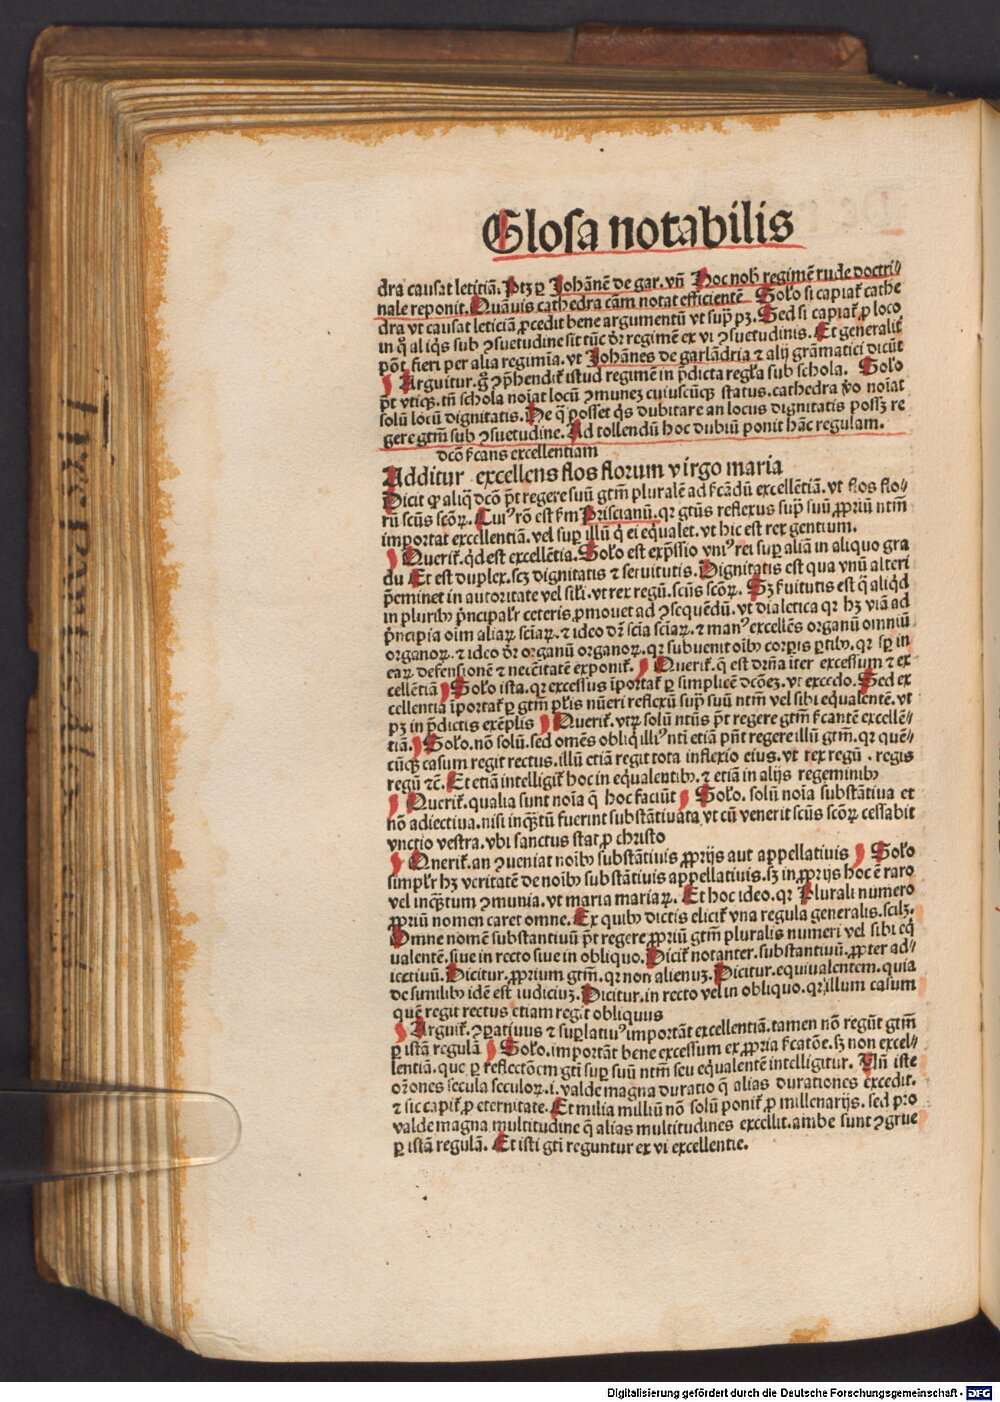 Glosa notabilis
dra causat letitiā. Ptꝫ ꝑ Johānē de gar. vn̄ Hoc nob̄ regimē rude doctri⸗
nale reponit. Quāuis cathedra cām notat efficientē Solo si capiat̄ cathe
dra vt causat leticiā ꝓcedit bene argumentū vt sup̄ pꝫ. Sed si capiat̄ ꝓ loco
in q̊ aliq̇s sub ꝯsuetudine sit tūc dr̄ regimē ex vi ꝯsuetudinis. Et generalit̄
pōt fieri per alia regimīa. vt Johānes de garlādria ⁊ alij grāmatici dicūt
Arguitur. gͦ ꝯp̄hendit̄ istud regimē in p̄dicta regl̄a sub schola. Solo
pt̄ vtiqꝫ. tn̄ schola noīat locū ꝯmuneꝫ cuiuscūqꝫ status. cathedra v̊o noīat
solū locū dignitatis. Ne q̄ posset q̇s dubitare an locus dignitatis possꝫ re
gere gtm̄ sub ꝯsuetudine. Ad tollendū hoc dubiū ponit hāc regulam.
dcō s̄cans excellentiam
Additur excellens flos florum virgo maria
Dicit ꝙ aliq̄ dcō pt̄ regere suū gtm̄ pluralē ad s̄cādū excellētiā. vt flos flo⸗
rū scūs scōꝝ. Cuiꝰ rō est s̄m Priscianū. qꝛ gtūs reflexus sup̄ suū ꝓpriū ntm̄
importat excellentiā. vel suꝑ illū q̄ ei eq̄ualet. vt hic est rex gentium.
Querit̄. qͥd est excellētia. Solo est exp̄ssio vniꝰ rei suꝑ aliā in aliquo gra
du Et est duplex. scꝫ dignitatis ⁊ seruitutis. Dignitatis est qua vnū alteri
p̄eminet in autoritate vel sil̄i. vt rex regū. scūs scōꝝ. Sꝫ s̄uitutis est q̄ aliqͥd
in pluribꝰ pͥncipal̄r ceteris ꝓmouet ad ꝯsequēdū. vt dialetica qꝛ hꝫ viā ad
pͥncipia oīm aliaꝝ scīaꝝ. ⁊ ideo dꝛ̄ scīa scīaꝝ. ⁊ manꝰ excellēs organū omniū
organoꝝ. ⁊ ideo dr̄ organū organoꝝ. qꝛ subuenit oībꝰ corꝑis ꝑtibꝰ. qꝛ sp̄ in
eaꝝ defensionē ⁊ necētitatē exponit̄. Querit̄. q̄ est dr̄na īter excessum ⁊ ex
cellētiā Solo ista. qꝛ excessus īportat̄ ꝑ simplicē dcōeꝫ. vt excedo. Sed ex
cellentia īportat̄ ꝑ gtm̄ pl̄is nūeri reflexū sup̄ suū ntm̄ vel sibi equalentē. vt
pꝫ in p̄dictis exēplis Querit̄. vtꝝ solū ntūs pt̄ regere gtm̄ s̄cantē excellē⸗
tiā. Solo. nō solū. sed omēs obliq̇ illiꝰ nti etiā pn̄t regere illū gtm̄. qꝛ quē⸗
cūqꝫ casum regit rectus. illū etiā regit tota inflexio eius. vt rex regū . regis
regū ⁊c̄. Et etiā intelligit̄ hoc in eq̄ualentibꝰ. ⁊ etiā in alijs regeminibꝰ
Querit̄. qualia sunt noīa q̄ hoc faciūt Solo. solū noīa substātiua et
nō adiectiua. nisi inq̄ꝫtū fuerint substātiuata vt cū venerit scūs scōꝝ cessabit
vnctio vestra. vbi sanctus stat ꝓ christo
Querit̄. an ꝯueniat noībꝰ substātiuis ꝓprijs aut appellatiuis Solo
simpl̄r hꝫ veritatē de noībꝰ substātiuis appellatiuis. sꝫ in ꝓprijs hoc ē raro
vel inq̄ꝫtum ꝯmunia. vt maria mariaꝝ. Et hoc ideo. qꝛ Plurali numero
ꝓpriū nomen caret omne. Ex quibꝰ dictis elicit̄ vna regula generalis. scilꝫ.
Omne nomē substantiuū pt̄ regere ꝓpriū gtm̄ pluralis numeri vel sibi eq̇
ualentē. siue in recto siue in obliquo. Dicit̄ notanter. substantiuū. ꝓpter ad⸗
iectiuū. Dicitur. ꝓprium gtm̄. qꝛ non alienuꝫ. Dicitur. equiualentem. quia
de similibꝰ idē est iudiciuꝫ. Dicitur. in recto vel in obliquo. qꝛ illum casum
quē regit rectus etiam regit obliquus
Arguit̄. ꝯꝑatiuus ⁊ suꝑlatiuꝰ importāt excellentiā. tamen nō regūt gtm̄
ꝑ istā regulā Solo. importāt bene excessum ex ꝓpria s̄catōe. sꝫ non excel⸗
lentiā. que ꝑ reflectōem gti suꝑ suū ntm̄ seu equalentē intelligitur. Vn̄ iste
oꝛ̄ones secula seculoꝝ. i. valde magna duratio q̄ alias durationes excedit.
⁊ sic capit̄ ꝓ eternitate. Et milia milliū nō solū ponit̄ ꝓ millenarijs. sed pro
valde magna multitudine q̄ alias multitudines excellit. ambe sunt ꝯgrue
ꝑ istā regulā. Et isti gti reguntur ex vi excellentie.
Digitalisierung gefördert durch die Deutsche Forschungsgemeinschaft -
DFG